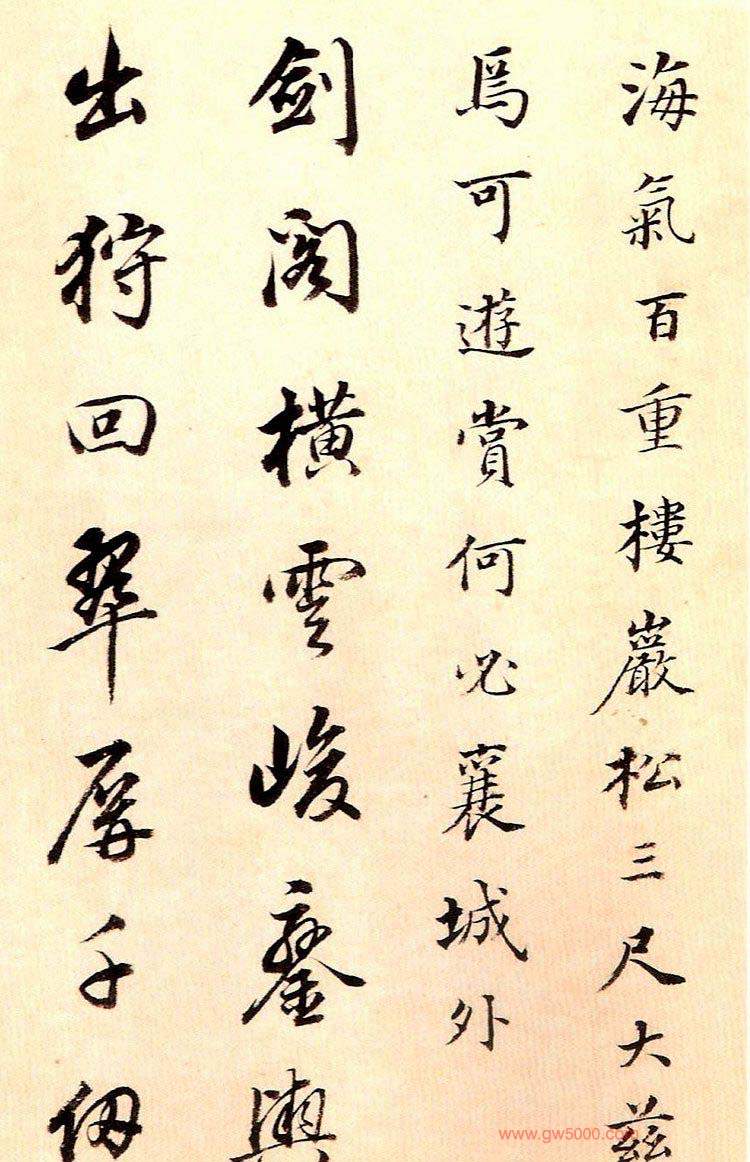 海氣百重樓巖松三尺大茲
焉可遊賞何必襄城外
劍閣橫雲峻鑾輿
出狩回翠屏千仞
www.gw5000.com